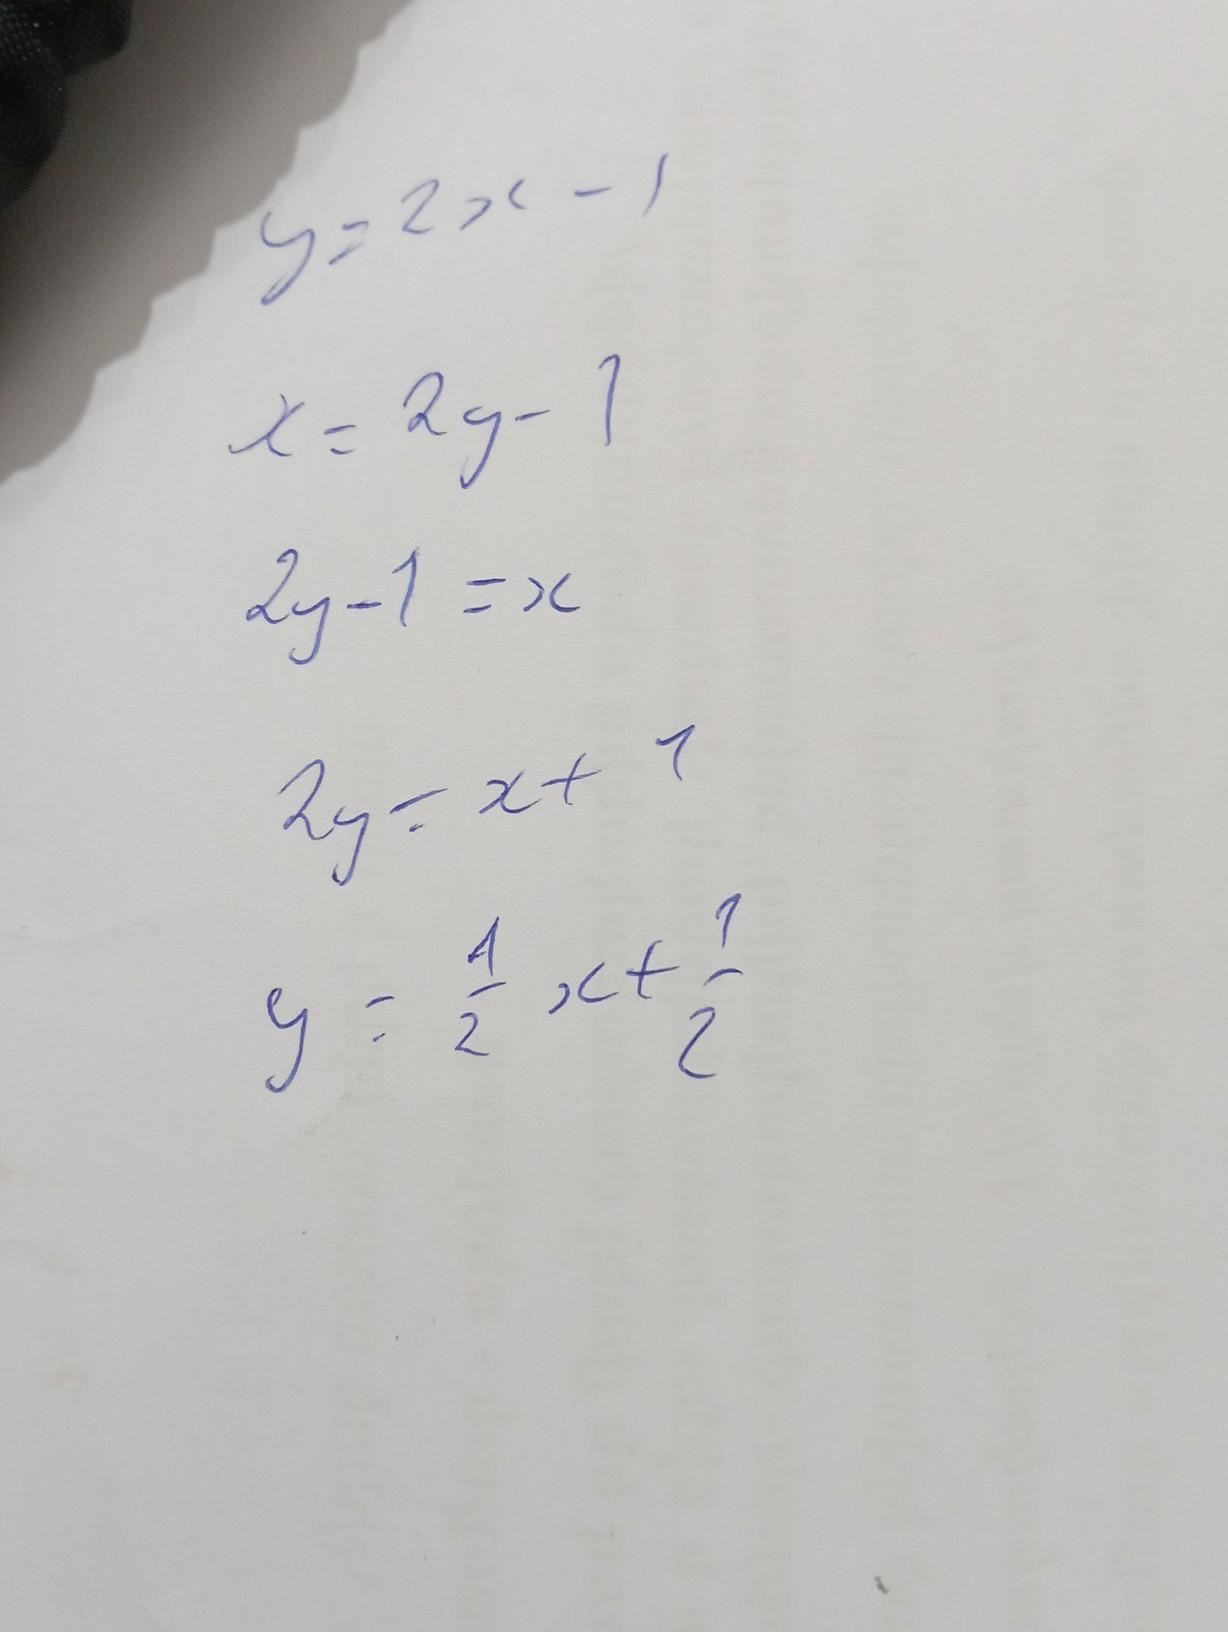 y = 2x - 1
x = 2y - 1
2y - 1 = x
2y = x + 1
y = 1/2 x + 1/2